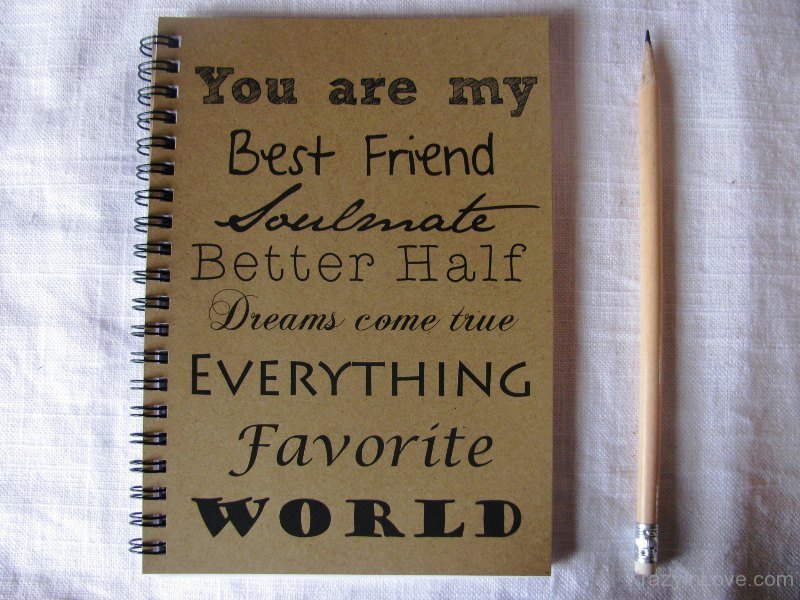 You are my
Best Friend
Soulmate
Better Half
Dreams come true
EVERYTHING
Favorite
WORLD
KrazyInLove.com